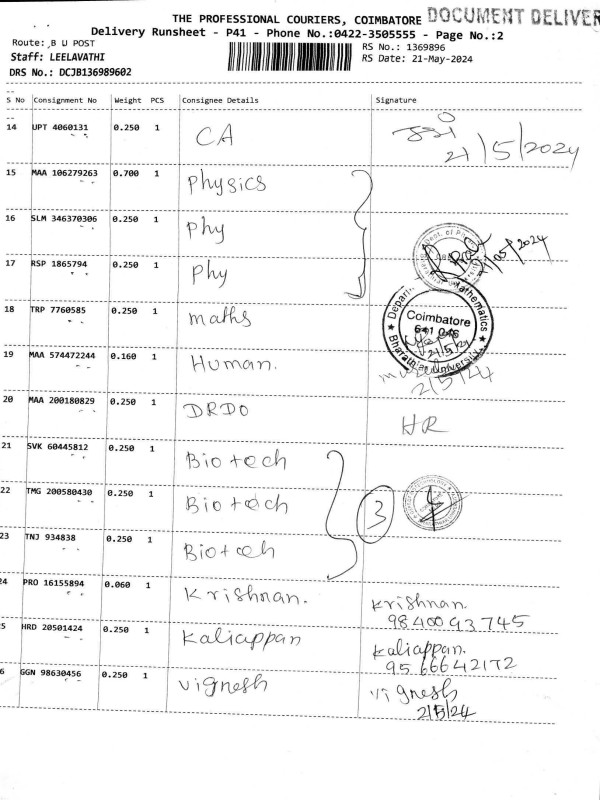 THE PROFESSIONAL COURIERS, COIMBATORE DOCUMENT DELIVER
Delivery Runsheet - P41 - Phone No.:0422-3505555 - Page No.:2
Route: B U POST
Staff: LEELAVATHI
DRS No.: DCJB136989602
RS No.: 1369896
RS Date: 21-May-2024
S No Consignment No Weight PCS Consignee Details Signature
14 UPT 4060131 0.250 1 CA
21/5/2024
15 MAA 106279263 0.700 1 Physics
16 SLM 346370306 0.250 1 Phy
17 RSP 1865794 0.250 1 Phy
18 TRP 7760585 0.250 1 maths
Coimbatore
641 046
Bharathiar University
21/5/24
19 MAA 574472244 0.160 1 Human.
2/5/24
20 MAA 200180829 0.250 1 DRDO HR
21 SVK 60445812 0.250 1 Biotech
22 TMG 200580430 0.250 1 Biotech 3
23 TNJ 934838 0.250 1 Biotech
24 PRO 16155894 0.060 1 Krishnan. Krishnan.
9840093745
5 HRD 20501424 0.250 1 Kaliappan Kaliappan.
9566642172
6 GGN 98630456 0.250 1 Vignesh Vignesh
21/5/24